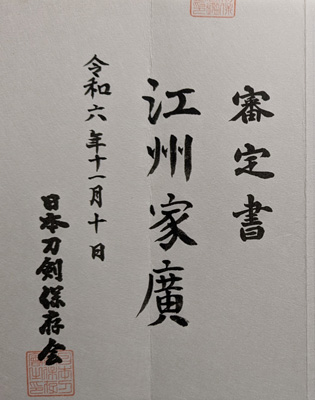 審定書
江州家廣
令和六年十一月十日
日本刀剣保存会